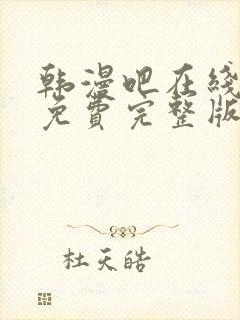 韩漫吧在线
免費完整版
杜天皓